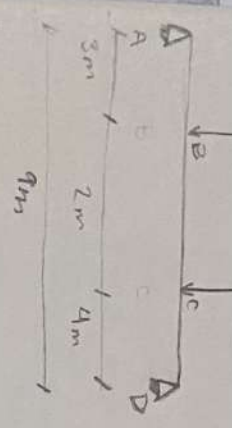 A B C D
3m 2m 4m
9m